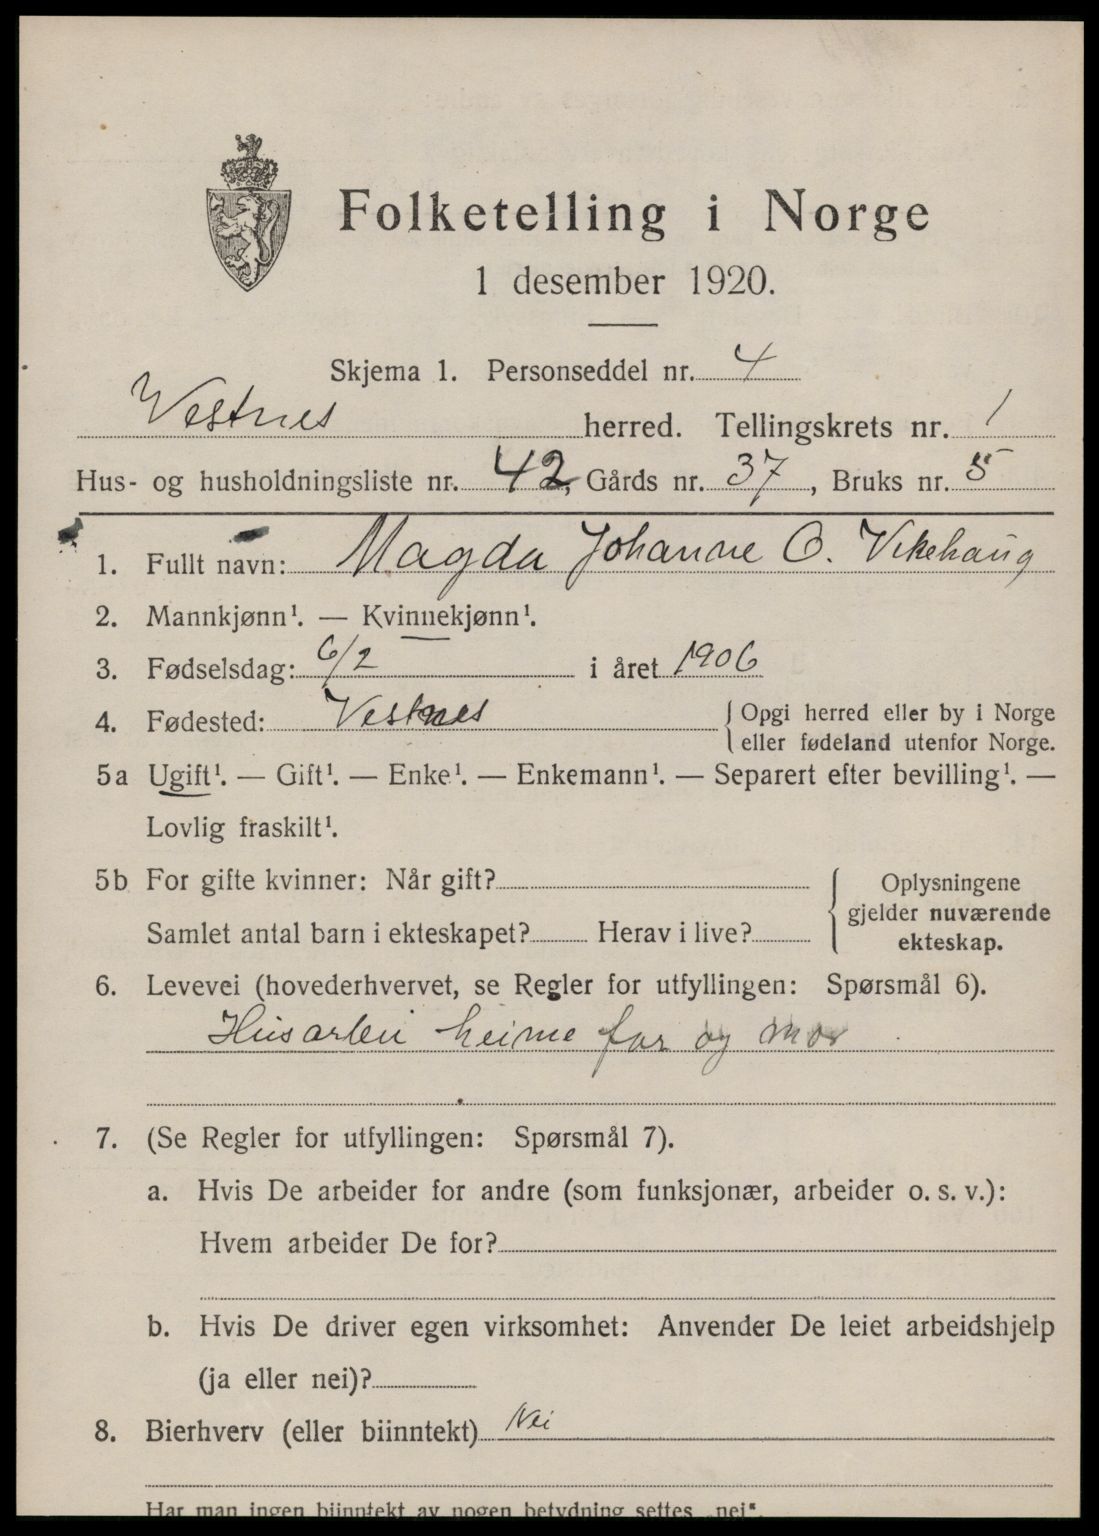 Folketelling i Norge
1 desember 1920.
Skjema 1. Personseddel nr. 4
Vestnes herred. Tellingskrets nr. 1
Hus- og husholdningsliste nr. 42, Gårds nr. 37, Bruks nr. 5
1. Fullt navn: Magda Johanne O. Vikehaug
2. Mannkjønn¹. — Kvinnekjønn¹.
3. Fødselsdag: 6/2 i året 1906
4. Fødested: Vestnes { Opgi herred eller by i Norge
eller fødeland utenfor Norge.
5a Ugift¹. — Gift¹. — Enke¹. — Enkemann¹. — Separert efter bevilling¹. —
Lovlig fraskilt¹.
5b For gifte kvinner: Når gift? { Oplysningene
gjelder nuværende
Samlet antal barn i ekteskapet? Herav i live? ekteskap.
6. Levevei (hovederhvervet, se Regler for utfyllingen: Spørsmål 6).
Husarbei heime far og mor
7. (Se Regler for utfyllingen: Spørsmål 7).
a. Hvis De arbeider for andre (som funksjonær, arbeider o. s. v.):
Hvem arbeider De for?
b. Hvis De driver egen virksomhet: Anvender De leiet arbeidshjelp
(ja eller nei)?
8. Bierhverv (eller biinntekt) Nei
Har man ingen biinntekt av nogen betydning settes „nei".